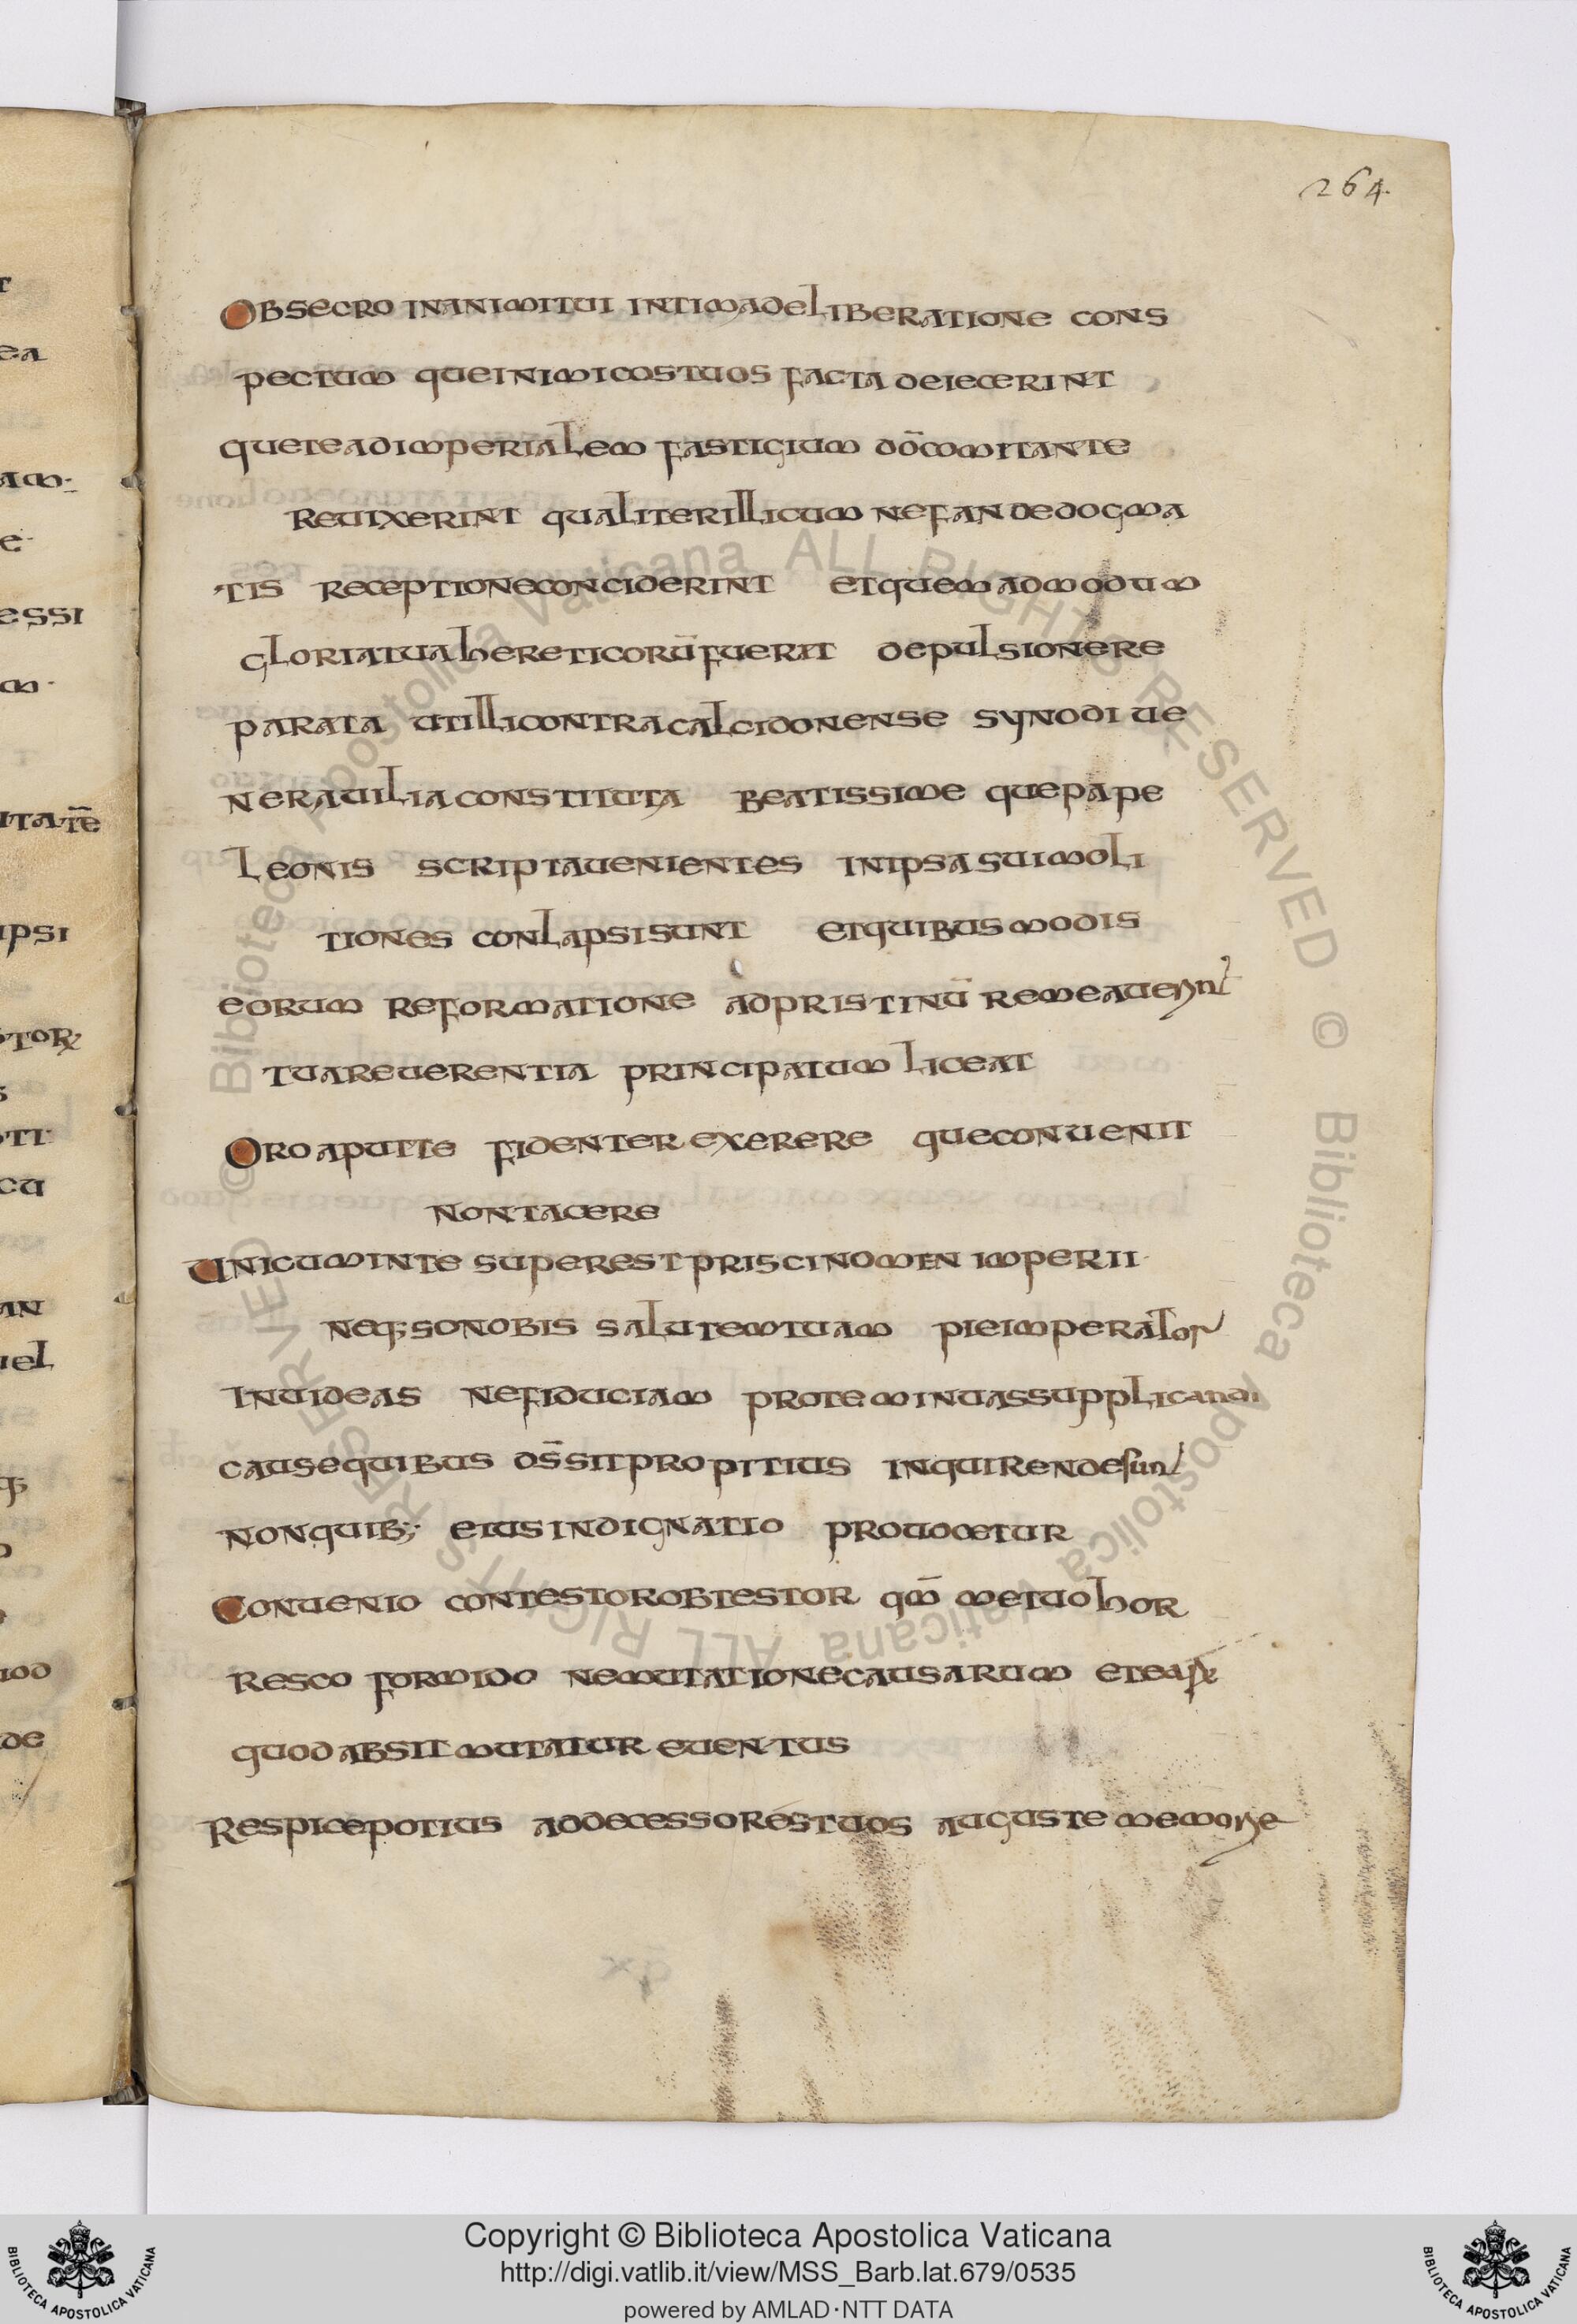 264.
OBSECRO INANIMITUI INTIMADELIBERATIONE CONS
PECTUM QUEINIMICOSTUOS FACTA DEIECERINT
QUETEADIMPERIALEM FASTIGIUM DŌCOMITANTE
REUIXERINT QUALITERILLICUM NEFANDEDOGMA
TIS RECEPTIONECONCIDERINT ETQUEMADMODUM
GLORIATUAHERETICORŪFUERIT DEPULSIONERE
PARATA UTILLICONTRACALCIDONENSE SYNODI UE
NERAUILIACONSTITUTA BEATISSIME QUEPAPE
LEONIS SCRIPTAUENIENTES INIPSASUIMOLI
TIONES CONLAPSISUNT ETQUIBUSMODIS
EORUM REFORMATIONE ADPRISTINŪ REMEAUERINT
TUAREUERENTIA PRINCIPATUM LICEAT
OROAPUTTE FIDENTER EXERERE QUECONUENIT
NONTACERE
UNICUMINTE SUPERESTPRISCINOMEN IMPERII·
NEQ;SONOBIS SALUTEMTUAM PIEIMPERATOR
INUIDEAS NEFIDUCIAM PROTEMINUASSUPPLICANDI
CAUSEQUIBUS D̄SSITPROPITIUS INQUIRENDESUNT
NONQUIB; EIUSINDIGNATIO PROUOCETUR
CONUENIO CONTESTOROBTESTOR QM̄ METUOHOR
RESCO FORMIDO NEMUTATIONECAUSARUM ETEARꝜ
QUODABSIT MUTATUR EUENTUS
RESPICEPOTIUS ADDECESSORESTUOS AUGUSTE MEMORIE
Copyright © Biblioteca Apostolica Vaticana
http://digi.vatlib.it/view/MSS_Barb.lat.679/0535
powered by AMLAD·NTT DATA
BIBLIOTECA APOSTOLICA VATICANA
BIBLIOTECA APOSTOLICA VATICANA
© Biblioteca Apostolica Vaticana ALL RIGHTS RESERVED © Biblioteca Apostolica Vaticana ALL RIGHTS RESERVED